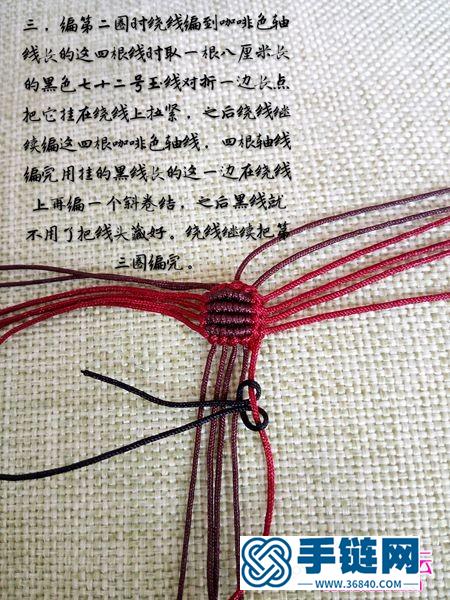 三，编第二圈时绕线编到咖啡色轴
线长的这四根线时取一根八厘米长
的黑色七十二号玉线对折一边长点
把它挂在绕线上拉紧，之后绕线继
续编这四根咖啡色轴线，四根轴线
编完用挂的黑线长的这一边在绕线
上再编一个斜卷结，之后黑线就
不用了把线头藏好。绕线继续把第
三圈编完。
手链网
www.36840.com